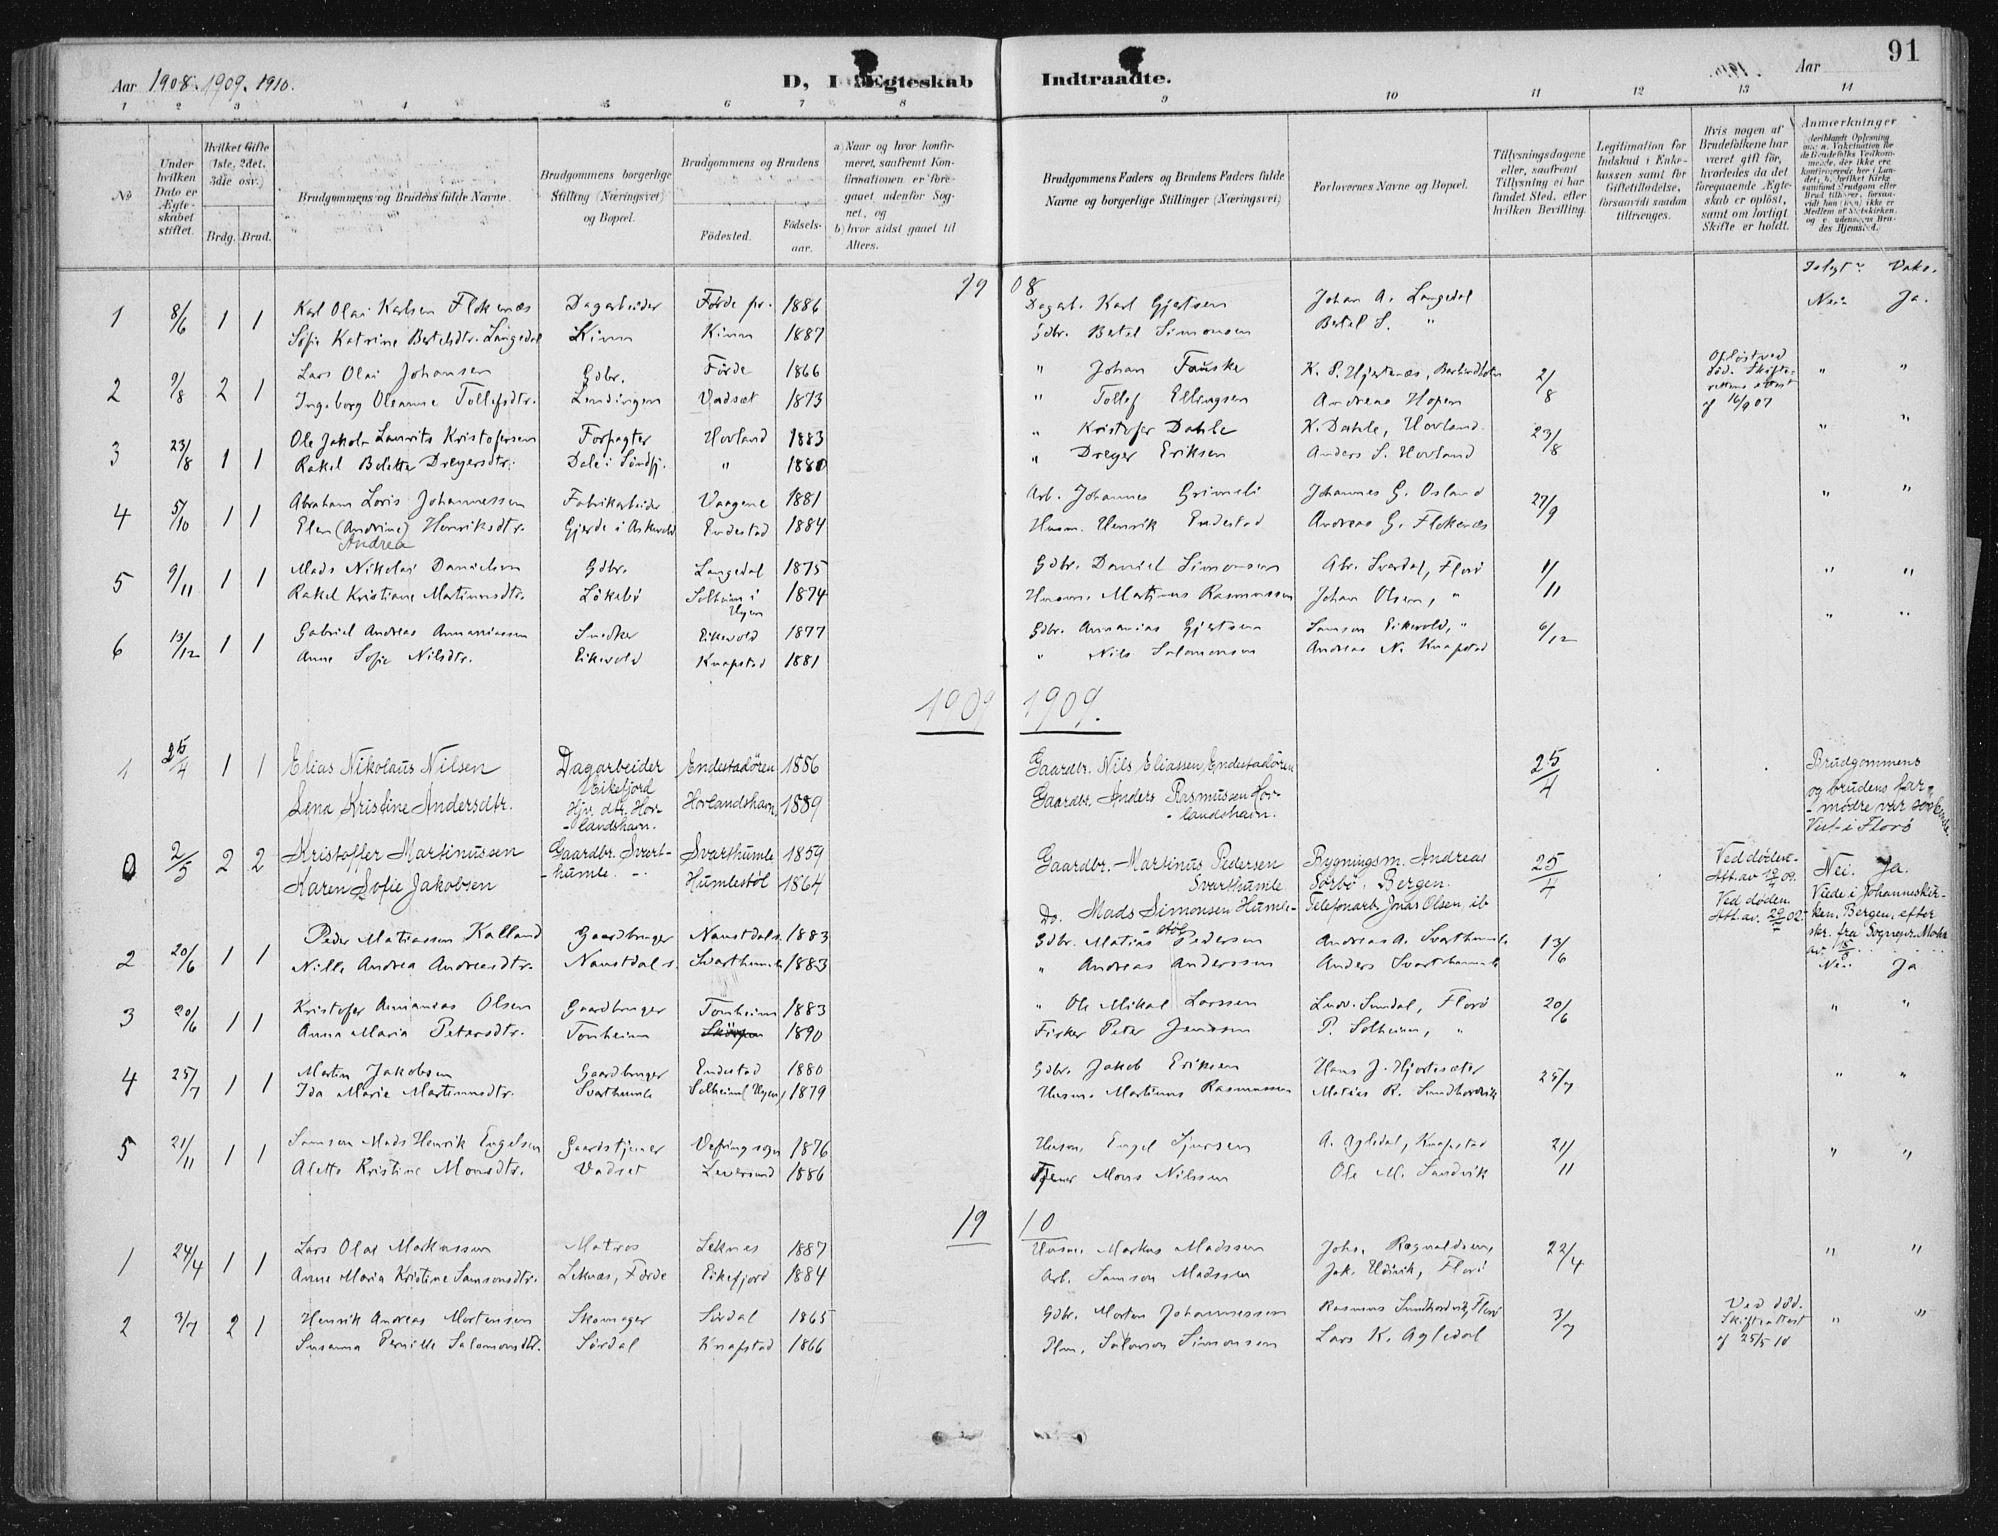 91
Aar 1908. 1909. 1910.
D, I Ægteskab Indtraadte.
Aar
1 2 3 4 5 6 7 8 9 10 11 12 13 14
No
Under hvilken Dato er Ægteskabet stiftet.
Hvilket Gifte (1ste, 2det, 3die osv.)
Brdg. Brud.
Brudgommens og Brudens fulde Navne.
Brudgommens borgerlige Stilling (Næringsvei) og Bopæl.
Brudgommens og Brudens
Fødested. Fødselsaar.
a) Naar og hvor konfirmeret, saafremt Konfirmationen er foregaaet udenfor Sognet, og
b) hvor sidst gaaet til Alters.
Brudgommens Faders og Brudens Faders fulde Navne og borgerlige Stillinger (Næringsvei)
Forlovernes Navne og Bopæl.
Tillysningsdagene eller, saafremt Tillysning ei har fundet Sted, efter hvilken Bevilling.
Legitimation for Indskud i Enkekassen samt for Giftetilladelse, forsaavidt saadan tiltrænges.
Hvis nogen af Brudefolkene har været gift før, hvorledes da det foregaaende Ægteskab er opløst, samt om lovligt Skifte er holdt.
Anmærkninger
1908
Vaks.
1 8/6 1 1 Karl Olai Karlsen Flokenæs Dagarbeider Førde pr. 1886 Dagarb. Karl Gjertsen Johan A. Langedal Nei Ja.
Sofie Katrine Bertelsdtr. Langedal Kinn Kinn 1887 Gdbr. Bertel Simonsen Bertel S. "
2 9/8 2 1 Lars Olai Johansen Gdbr. Førde 1866 " Johan Fauske K. P. Hjertenæs, 2/8 Opløst ved død. Skifterettens attest af 16/9 07 " "
Ingeborg Oleanne Tollefsdtr. Lendingen Vadsæt 1873 " Tollef Ellingsen Andreas Hopen
3 23/8 1 1 Ole Jakob Laurits Kristofersen Forpagter Hovland 1883 " Kristofer Dahle K. Dahle, Hovland 23/8 " "
Rakel Bolette Dreyersdtr. Dale i Søndfj. " 1880 " Dreyer Eriksen Anders S. Hovland
4 5/10 1 1 Abraham Loris Johannessen Fabrikarbeider Vaagene 1881 Arb. Johannes Grimeli Johannes G. Osland 27/9 " "
Elen (Andrine) Henriksdtr. Gjerde i Askevold Endestad 1884 Husm. Henrik Endestad Andreas G. Flokenæs
Andrea
5 9/11 1 1 Mads Nikolai Danielsen Gdbr. Langedal 1875 Gdbr. Daniel Simonsen Abr. Svardal, Florø 1/11 " "
Rakel Kristiane Martinusdtr. Løkebø Solheim i Hyen 1874 Husm. Martinus Rasmussen Johan Olsen, "
6 13/12 1 1 Gabriel Andreas Annaniassen Snedker Eikevold 1877 Gdbr. Annanias Gjertsen Samson Eikevold, " 6/12 " "
Anne Sofie Nilsdtr. Eikevold Knapstad 1881 " Nils Salomonsen Andreas N. Knapstad
1909 1909.
1 25/4 1 1 Elias Nikolaus Nilsen Dagarbeider Eikefjord Endestadören 1886 Gaardbr. Nils Eliassen, Endestadören 25/4 Brudgommens og brudens far
Lena Kristine Andersdtr. Hjv. dtr. Hovlandshavn. Hovlandshavn 1889 Gaardbr. Anders Rasmussen Hovlandshavn.
2/5 2 2 Kristoffer Martinussen Gaardbr. Svarthumle Svarthumle 1859 Gaardbr. Martinus Pedersen Svarthumle Bygningsm. Andreas Sørbø, Bergen. 25/4 Ved döden. Nei. Ja.
Karen Sofie Jakobsen Humlestöl 1864 Do. Mads Simonsen Humlestöl Telefonarb. Jonas Olsen, ib Ved döden. Viede i Johanneskirken, Bergen, efter
2 20/6 1 1 Peder Matiassen Kalland Gaardbruger Naustdal s. 1883 Gdbr. Matias Pedersen Andreas A. Svarthumle 13/6 Nei Ja
Nille Andrea Andreasdtr. Naustdal s. Svarthumle 1883 " Andreas Anderssen Anders Svarthumle
3 20/6 1 1 Kristofer Annanias Olsen Gaardbruger Tonheim 1883 " Ole Mikal Larssen Ludv. Sundal, Florø 20/6 " "
Anna Maria Petersdtr. Tonheim 1890 Fisker Peter Jenssen P. Solheim, "
4 25/7 1 1 Martin Jakobsen Gaardbruger Endestad 1880 Gdbr. Jakob Eriksen Hans J. Hjortesæter 25/7 " "
Ida Marie Martinusdtr. Svarthumle Solheim (Hyen) 1879 Husm. Martinus Rasmussen Matias R. Sundhordvik
5 21/11 1 1 Samson Mads Henrik Engelsen Gaardstjener Vefring sogn 1876 Husm. Engel Sjursen A. Agledal, Knapstad 21/11 " "
Alette Kristine Monsdtr. Vadset Leversund 1886 Tjener Mons Nilssen Ole M. Sandvik
1910
1 24/4 1 1 Lars Olai Markussen Matros Leknes 1887 Husm. Markus Madssen Johs. Ragnvaldsen, 22/4 " "
Anne Maria Kristine Samsonsdtr. Leknæs, Førde Eikefjord 1884 Arb. Samson Madssen Jak. Florø
2 3/7 2 1 Henrik Andreas Mortensen Skomager Sørdal 1865 Gdbr. Morten Johannessen Rasmus Sundhordvik, Florø 3/7 Ved død. Skifteattest af 25/5 10 " "
Susanna Pernille Salomonsdtr. Sørdal Knapstad 1866 Salomon Simonsen Lars K. Agledal